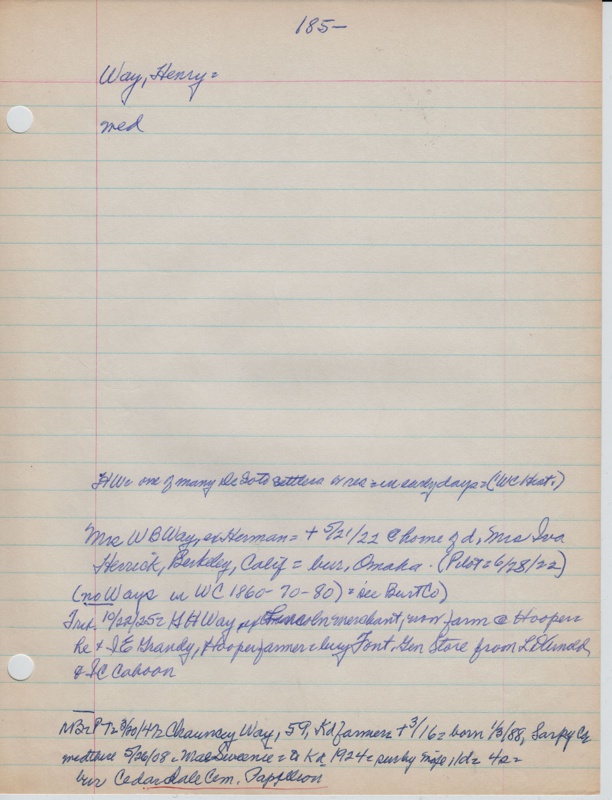 185-
Way, Henry =
med
HW= one of many DeSoto settlers or res = in early days = (WC Hist.)
Mrs W B Way, ex Herman = + 5/21/22 @ home of d, Mrs Iva
Herrick, Berkeley, Calif = bur, Omaha. (Pilot = 6/28/22)
(no Ways in WC 1860-70-80) = see Burt Co)
Trib 10/22/25 = H H Way Lincoln merchant, now farm @ Hooper
he + I E Grandy, Hooper farmer = buy Font. Gen Store from
& IC Cahoon
3/20/47 = Chauncey Way, 59, Kd farmer + 3/16 = born 1/3/88, Sarpy Co
5/26/08 = = to Kd 1924 = surv by wife, 1d = 4s =
bur Cedardale Cem. Papillion